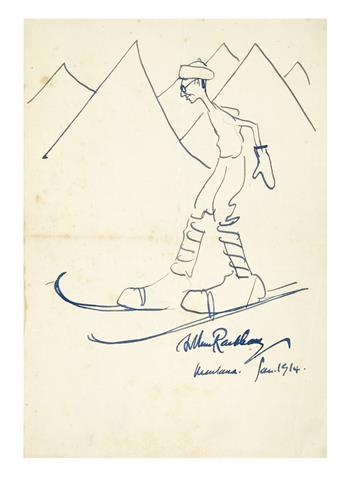 Arthur Rackham
Montana. Jan. 1914.